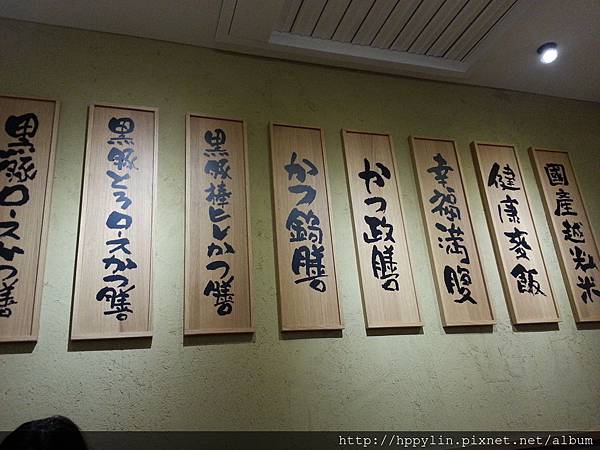 黒豚ロースかつ膳
黒豚とろロースかつ膳
黒豚棒ヒレかつ膳
かつ鍋膳
かつ政膳
幸福満腹
健康麦飯
國産越光米
http://hppylin.pixnet.net/album